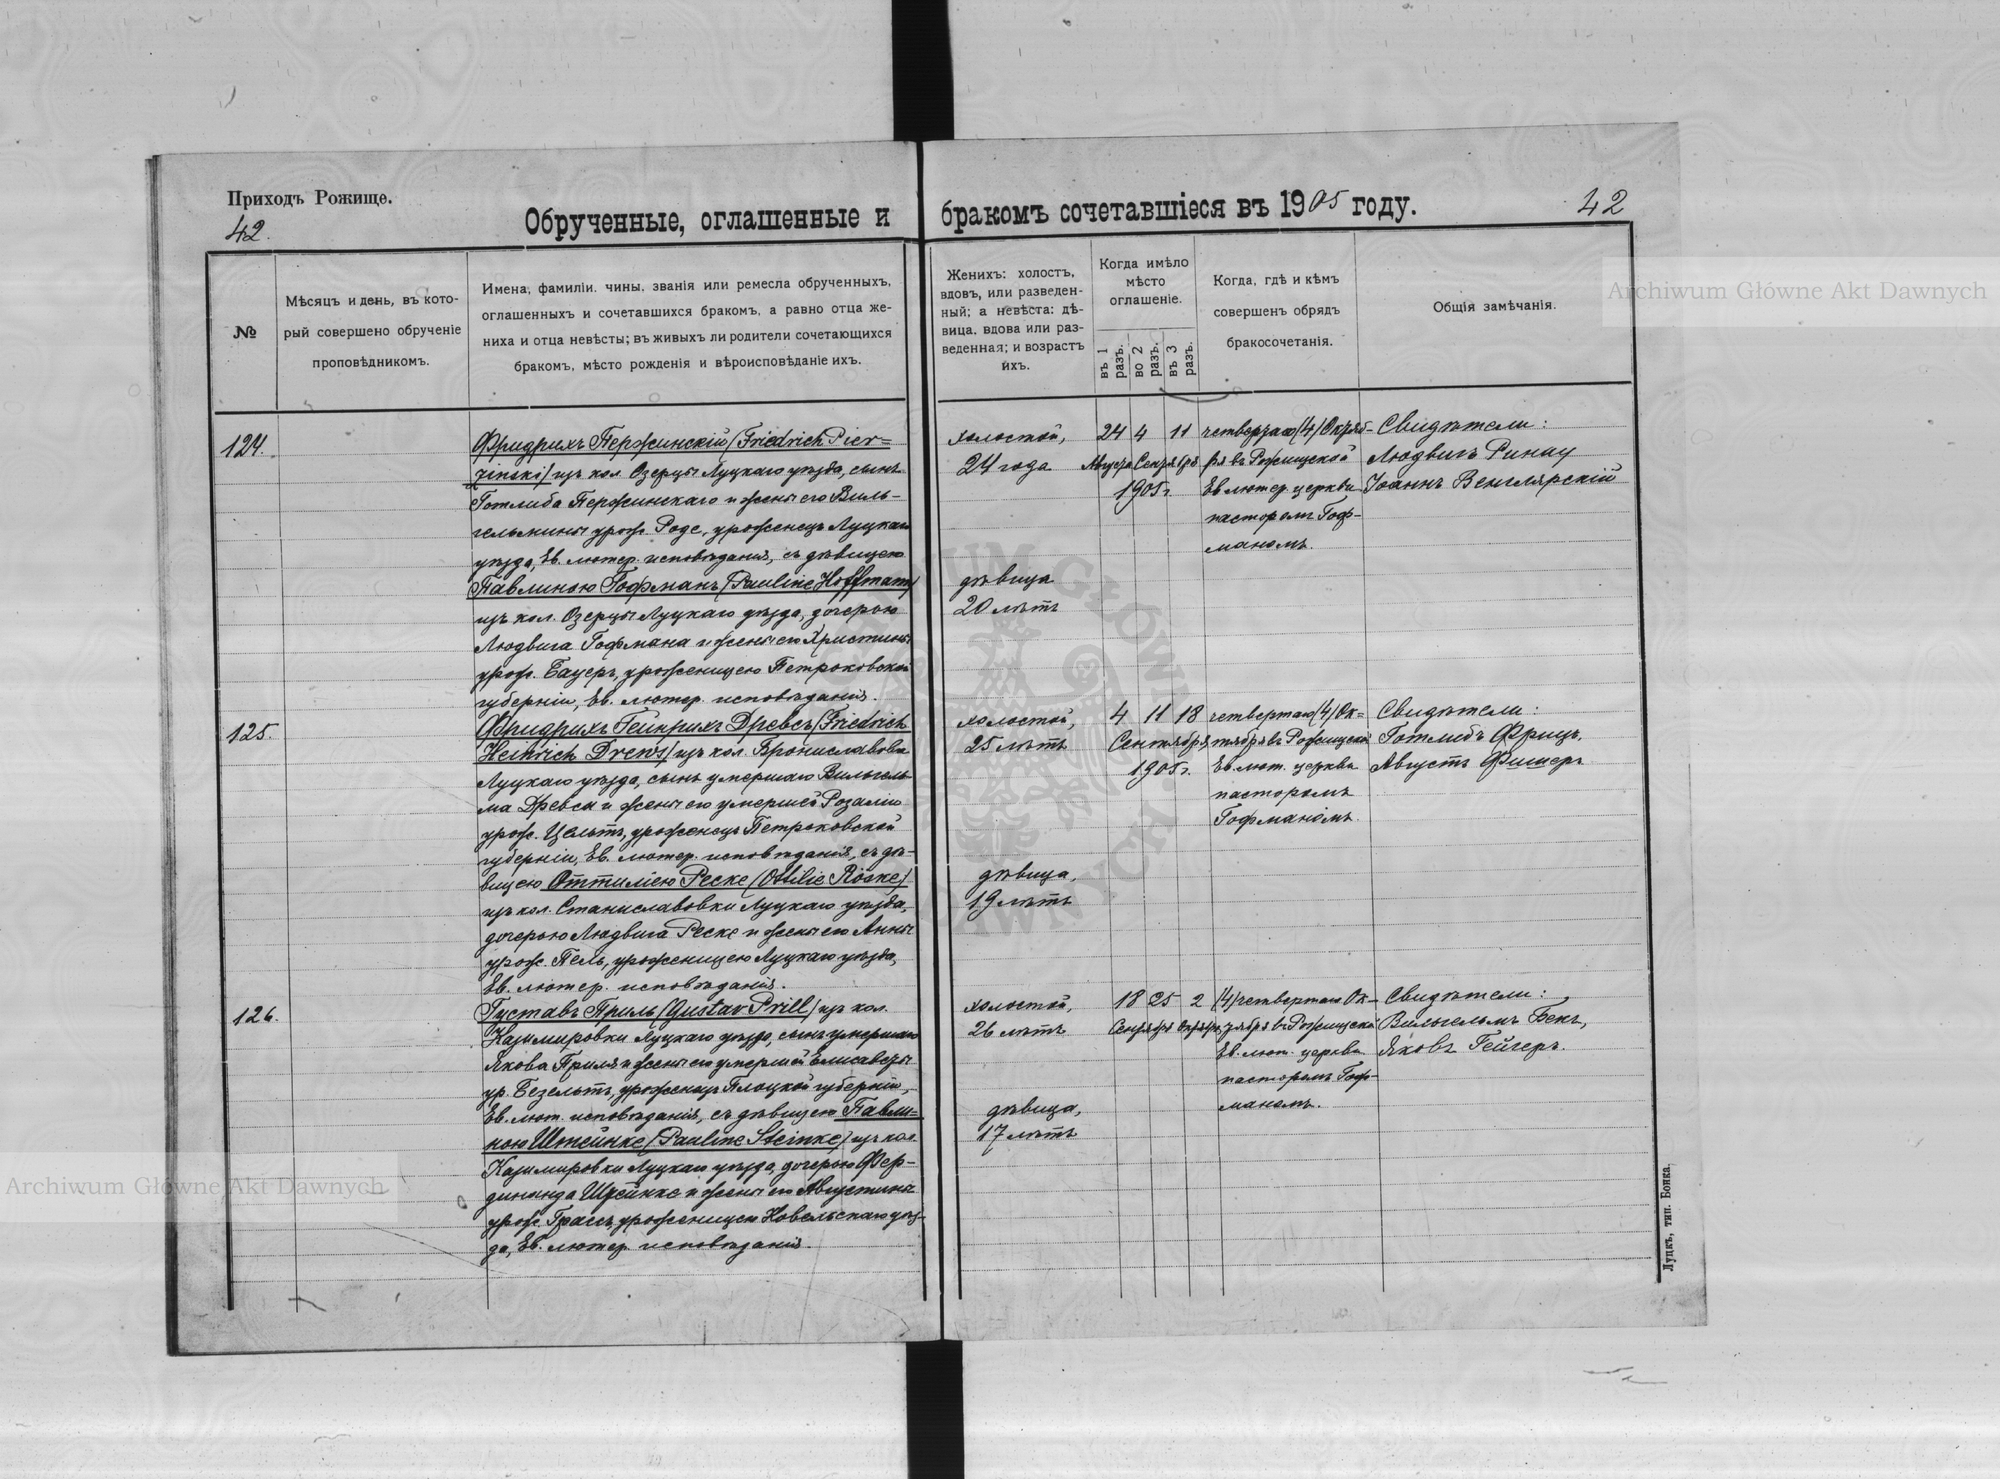 Приходъ Рожище.
42.
Обрученные, оглашенные и бракомъ сочетавшіеся въ 1905 году.
42
№
Мѣсяцъ и день, въ кото-
рый совершено обрученіе
проповѣдникомъ.
Имена, фамиліи, чины, званія или ремесла обрученныхъ,
оглашенныхъ и сочетавшихся бракомъ, а равно отца же-
ниха и отца невѣсты; въ живыхъ ли родители сочетающихся
бракомъ, мѣсто рожденія и вѣроисповѣданіе ихъ.
Женихъ: холостъ,
вдовъ, или разведен-
ный; а невѣста: дѣ-
вица, вдова или раз-
веденная; и возрастъ
ихъ.
Когда имѣло
мѣсто
оглашеніе.
въ 1 разъ.
во 2 разъ.
въ 3 разъ.
Когда, гдѣ и кѣмъ
совершенъ обрядъ
бракосочетанія.
Общія замѣчанія.
124.
Фридрихъ Пержинскій (Friedrich Pier=
zinski) изъ кол. Озерцы Луцкаго уѣзда, сынъ
Готлиба Пержинскаго и жены его Виль-
гельмины урож. Роде, уроженецъ Луцкаго
уѣзда, Ев. лютер. исповѣданія, съ дѣвицею
Павлиною Гофманъ (Pauline Hoffmann)
изъ кол. Озерцы Луцкаго уѣзда, дочерью
Людвига Гофмана и жены его Христины
урож. Бауеръ, уроженицею Петроковской
губерніи, Ев. лютер. исповѣданія.
холостой,
24 года
дѣвица
20 лѣтъ
24 4 11
Августа Сентября
1905 г.
четвертаго (4) Октяб-
ря въ Рожищской
Ев. лютер. церкви
пасторомъ Гоф-
маномъ.
Свидѣтели:
Людвигъ Ринау
Іоаннъ Венглярскій
125.
Фридрихъ Гейнрихъ Древсъ (Friedrich
Heinrich Drews) изъ кол. Брониславовки
Луцкаго уѣзда, сынъ умершаго Вильгель-
ма Древса и жены его умершей Розаліи
урож. Цельтъ, уроженецъ Петроковской
губерніи, Ев. лютер. исповѣданія, съ дѣ-
вицею Оттиліею Реске (Ottilie Röske)
изъ кол. Станиславовки Луцкаго уѣзда,
дочерью Людвига Реске и жены его Анны
урож. Пель, уроженицею Луцкаго уѣзда,
Ев. лютер. исповѣданія.
холостой,
25 лѣтъ
дѣвица,
19 лѣтъ
4 11 18
Сентября
1905 г.
четвертаго (4) Ок=
тября въ Рожищской
Ев. лют. церкви
пасторомъ
Гофманомъ.
Свидѣтели:
Готлибъ Фрицъ,
Августъ Фишеръ
126.
Густавъ Приль (Gustav Prill) изъ кол.
Казимировки Луцкаго уѣзда, сынъ умершаго
Якова Приля и жены его умершей Елисаветы
ур. Безельтъ, уроженецъ Плоцкой губерніи,
Ев. лют. исповѣданія, съ дѣвицею Павли=
ною Штейнке (Pauline Steinke) изъ кол.
Казимировки Луцкаго уѣзда, дочерью Фер-
динанда Штейнке и жены его Августины
урож. Грассъ, уроженицею Ковельскаго уѣз-
да, Ев. лютер. исповѣданія.
холостой,
26 лѣтъ
дѣвица,
17 лѣтъ
18 25 2
Сентября Октября
(4) четвертаго Ок-
тября въ Рожищской
Ев. лют. церкви
пасторомъ Гоф-
маномъ.
Свидѣтели:
Вильгельмъ Бекъ,
Яковъ Гейгеръ.
Луцкъ, тип. Бонка.
Archiwum Główne Akt Dawnych
Archiwum Główne Akt Dawnych